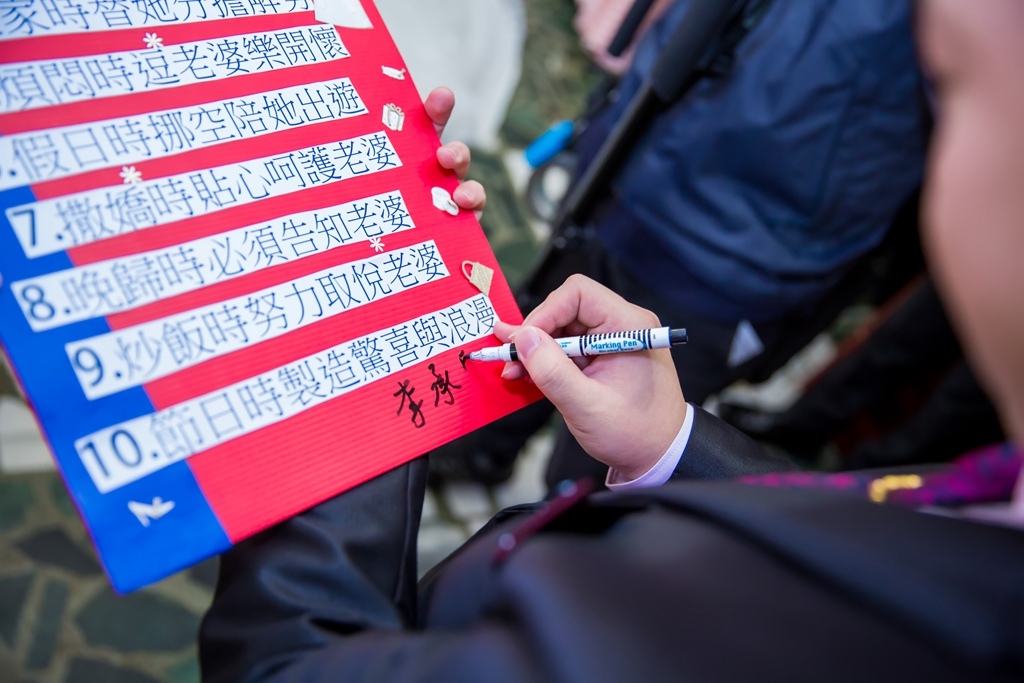 家時替她分擔解勞
煩悶時逗老婆樂開懷
.假日時挪空陪她出遊
7.撒嬌時貼心呵護老婆
8.晚歸時必須告知老婆
9.炒飯時努力取悅老婆
10.節日時製造驚喜與浪漫
李承
Marking Pen